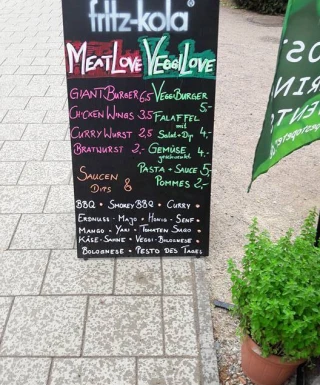 fritz-kola®
MEATLOVE VEGGILOVE
GIANTBURGER 6,5
CHICKEN WINGS 3,5
CURRYWURST 2,5
BRATWURST 2,-
VEGGIBURGER 5,-
FALAFFEL
mit
Salat + Dip 4,-
GEMÜSE 4,-
geschwenkt
PASTA + SAUCE 5,-
POMMES 2,-
SAUCEN &
DIPS
BBQ • SMOKEY BBQ • CURRY •
ERDNUSS • MAYO • HONIG-SENF •
MANGO • YAKI • TOMATEN SUGO •
KÄSE-SAHNE • VEGGI-BOLOGNESE •
BOLOGNESE • PESTO DES TAGES